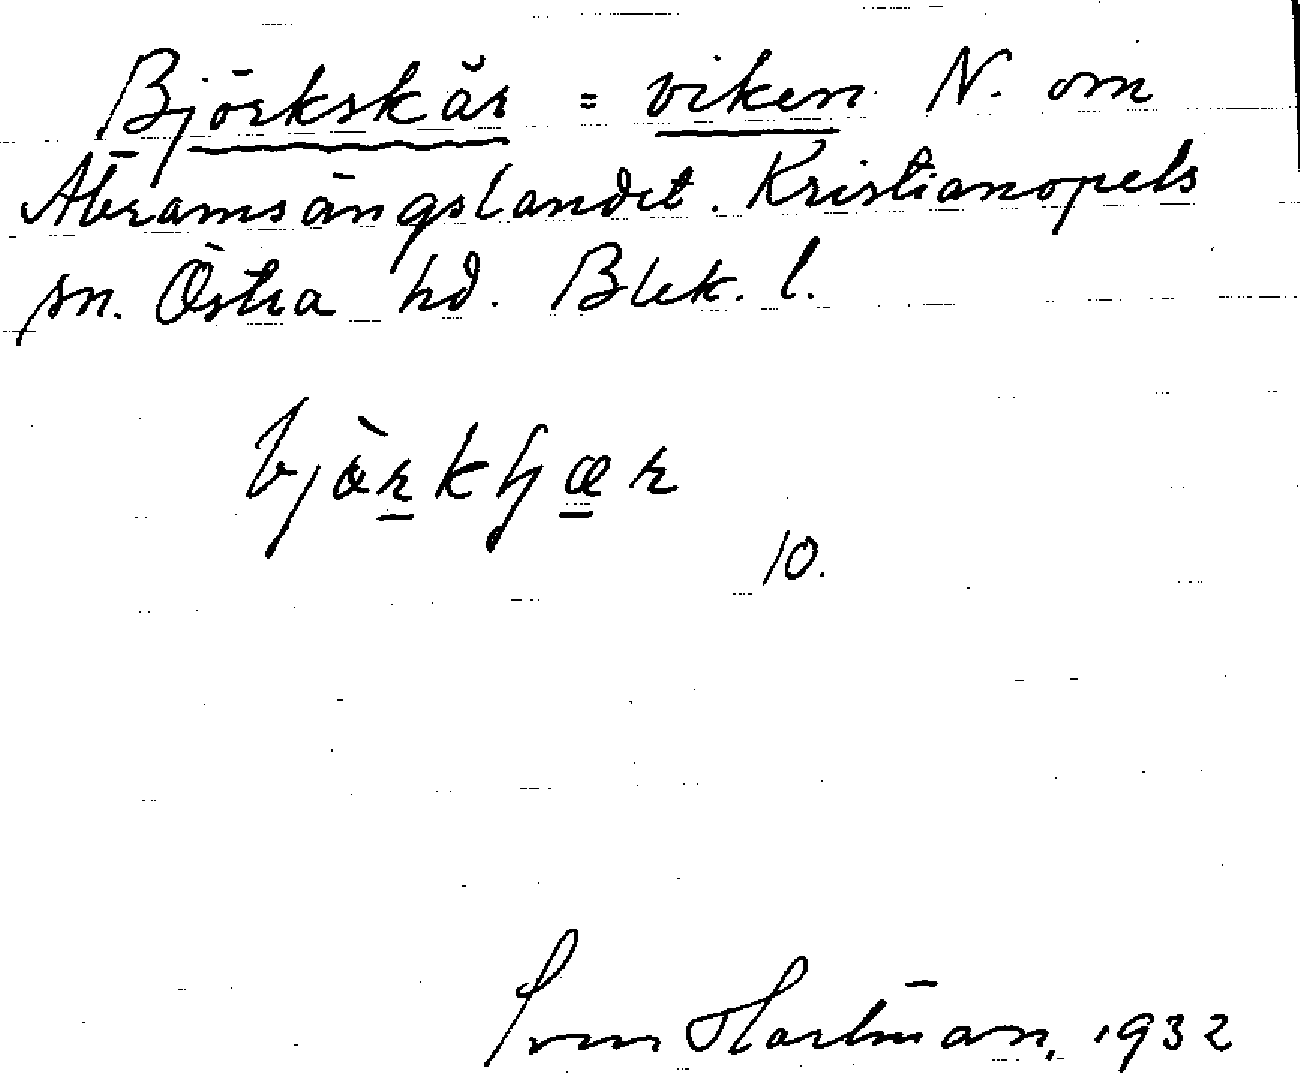 Björkskär = viken N. om
Abramsängslandet. Kristianopels
sn. Östra hd. Blek. l.
bjòrkhjær
10.
Sven Hartman, 1932